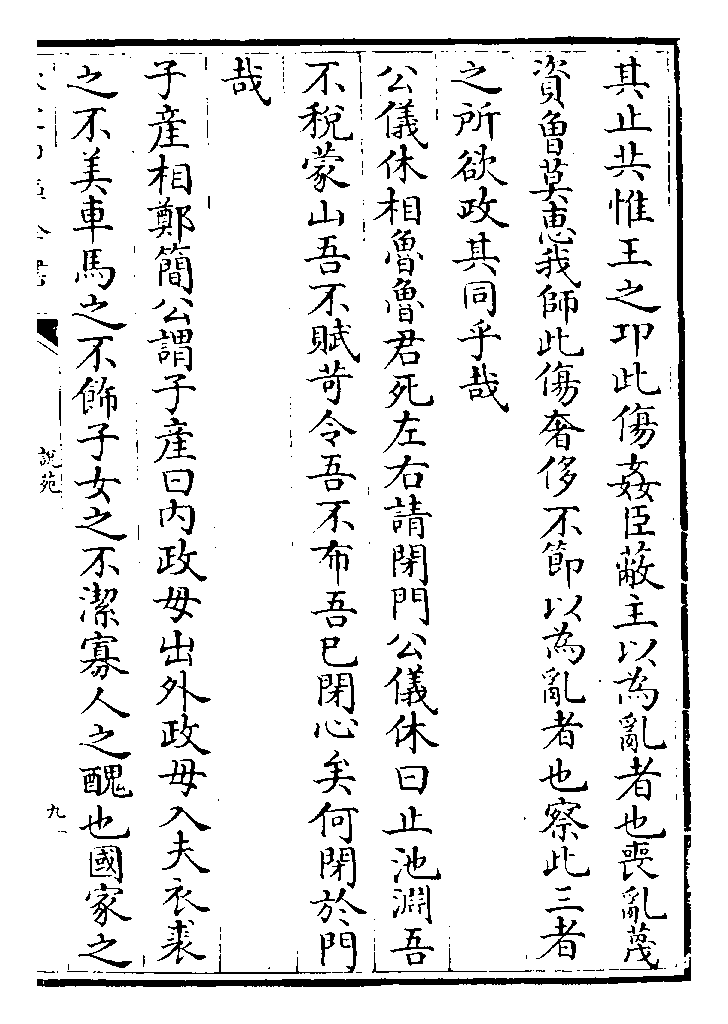 其止共惟王之卭此傷姦臣蔽主以為亂者也喪亂蔑
資魯莫惠我師此傷奢侈不節以為亂者也察此三者
之所欲政其同乎哉
公儀休相魯魯君死左右請閉門公儀休曰止池淵吾
不稅蒙山吾不賦苛令吾不布吾已閉心矣何閉於門
哉
子産相鄭簡公謂子産曰内政毋出外政毋入夫衣裘
之不美車馬之不飾子女之不潔寡人之醜也國家之
說苑
九